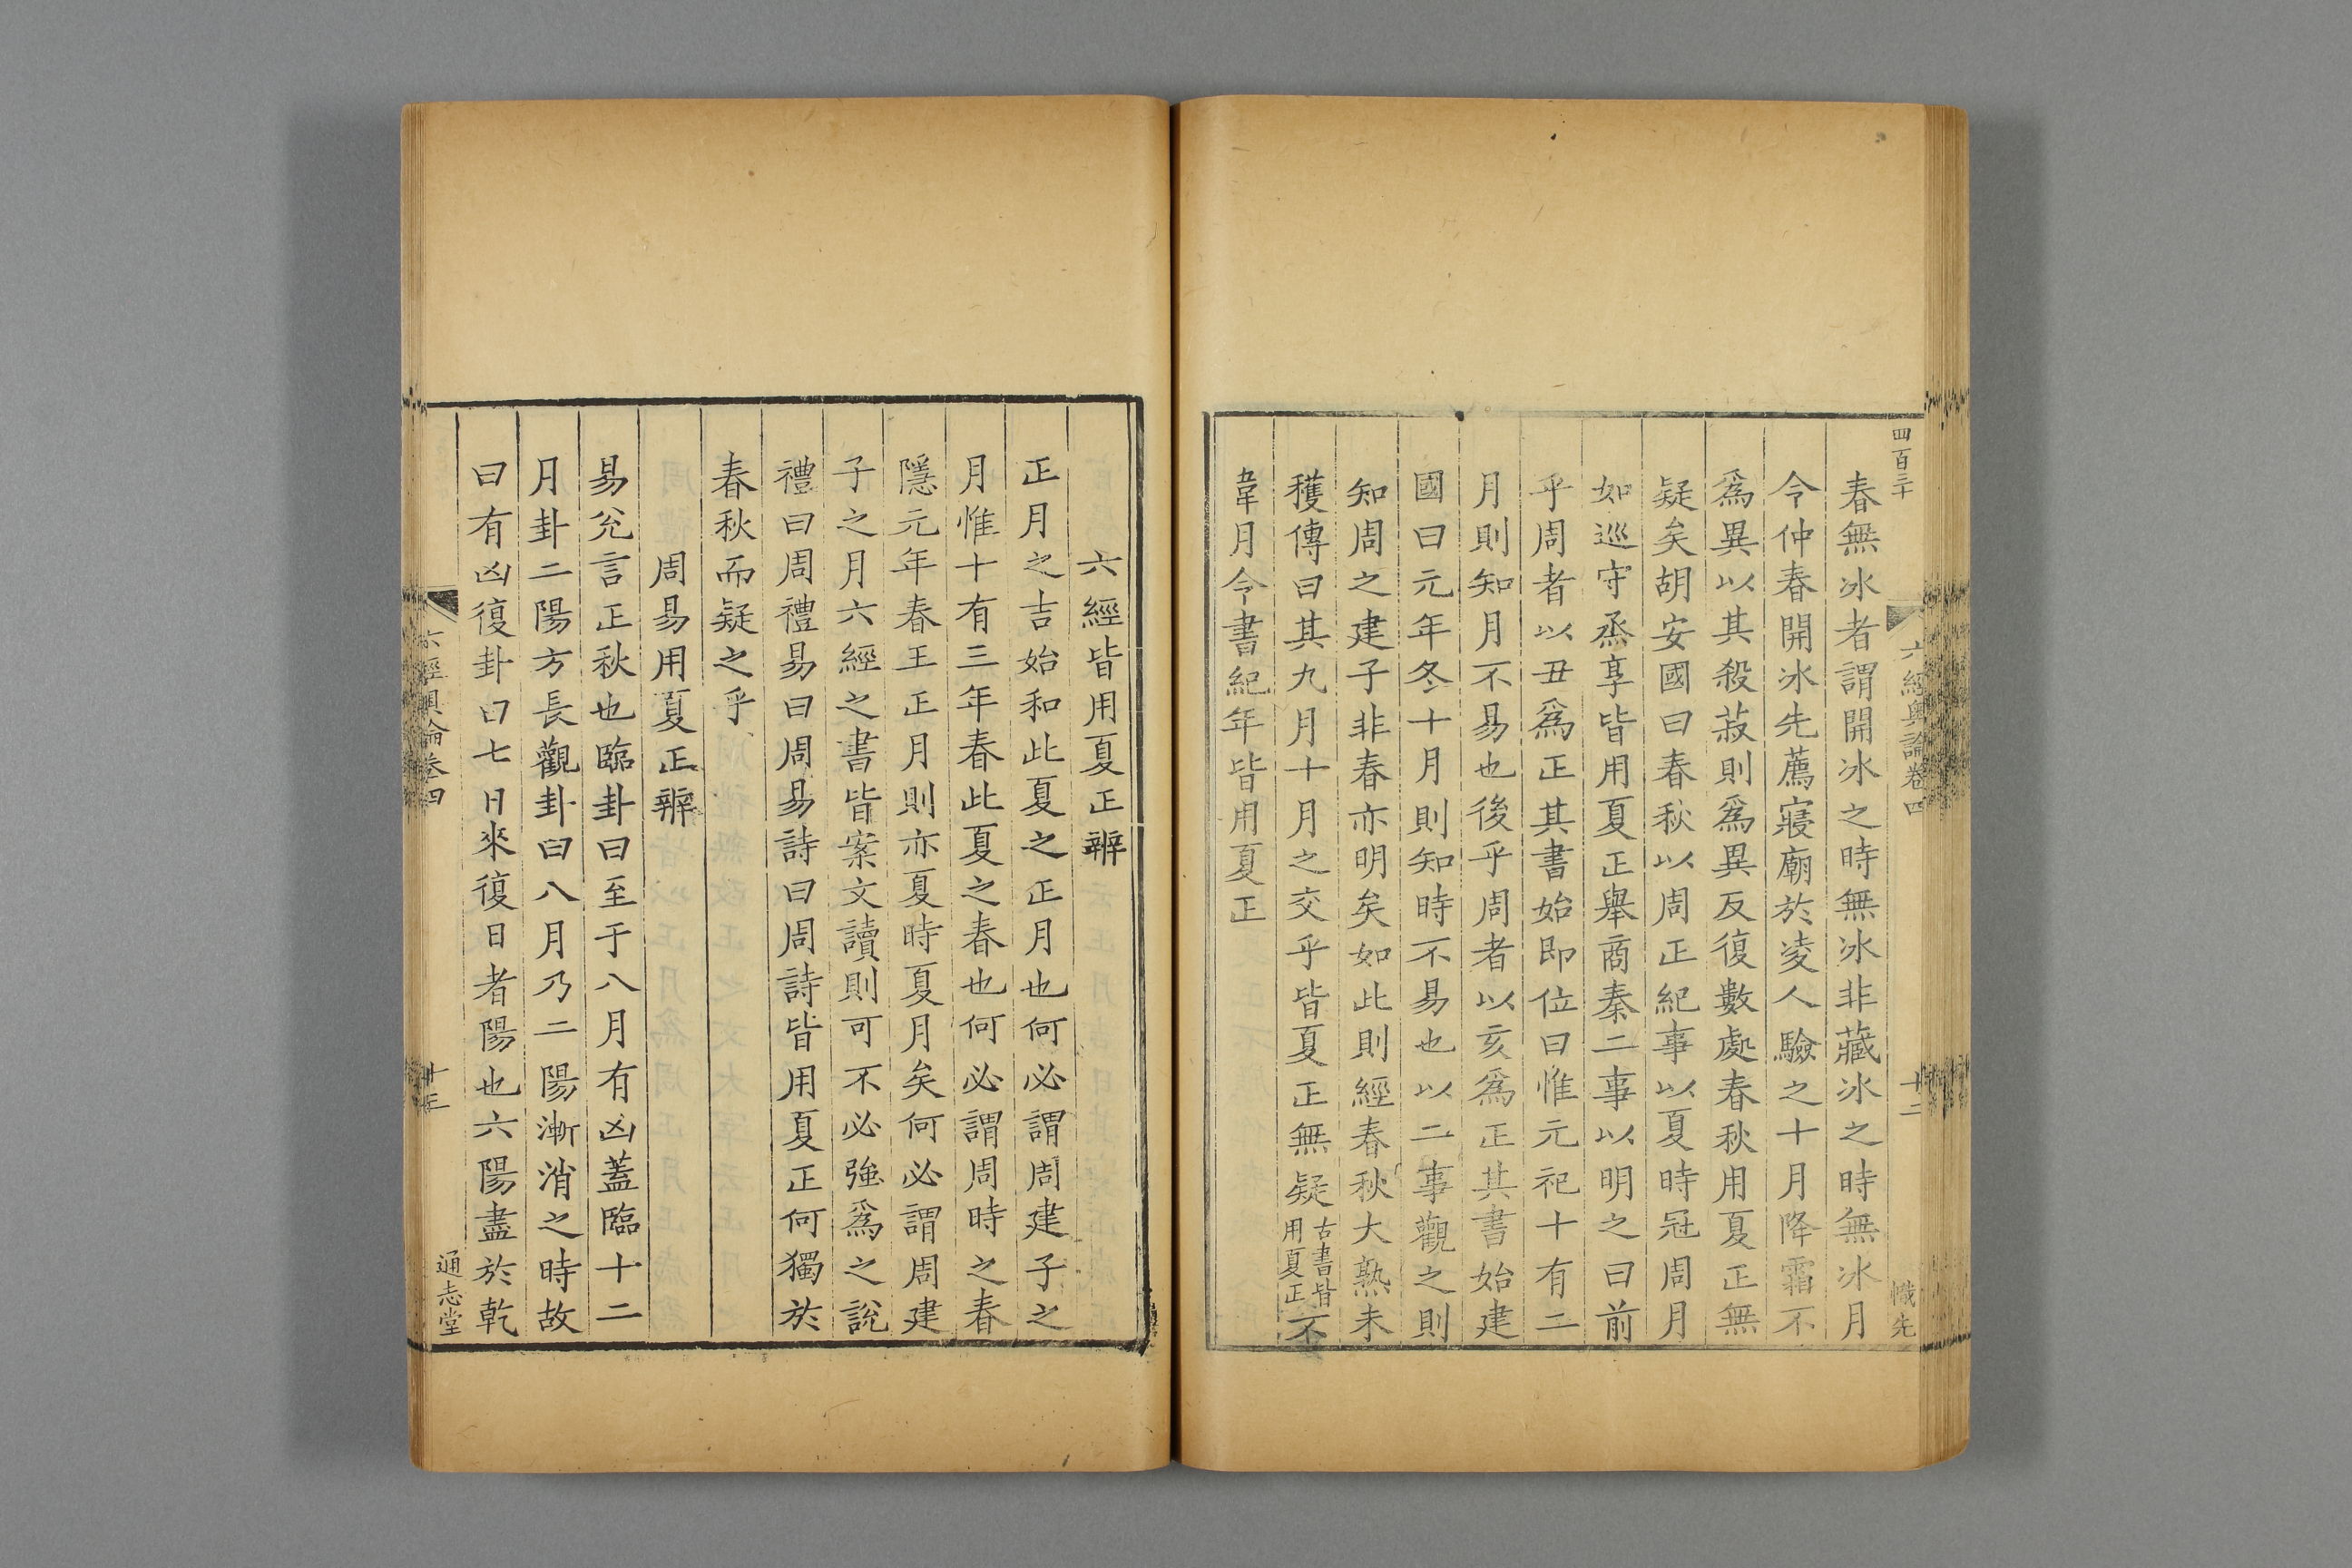 四百三十
六經奧論卷四
十二
幟先
春無冰者謂開冰之時無冰非藏冰之時無冰月
令仲春開冰先薦寢廟於凌人驗之十月降霜不
爲異以其殺菽則爲異反復數處春秋用夏正無
疑矣胡安國曰春秋以周正紀事以夏時冠周月
如巡守烝享皆用夏正舉商秦二事以明之曰前
乎周者以丑爲正其書始即位曰惟元祀十有二
月則知月不易也後乎周者以亥爲正其書始建
國曰元年冬十月則知時不易也以二事觀之則
知周之建子非春亦明矣如此則經春秋大熟未
穫傳曰其九月十月之交乎皆夏正無疑古書皆用夏正不
韋月令書紀年皆用夏正
六經皆用夏正辨
正月之吉始和此夏之正月也何必謂周建子之
月惟十有三年春此夏之春也何必謂周時之春
隱元年春王正月則亦夏時夏月矣何必謂周建
子之月六經之書皆案文讀則可不必強爲之說
禮曰周禮易曰周易詩曰周詩皆用夏正何獨於
春秋而疑之乎
周易用夏正辨
易兊言正秋也臨卦曰至于八月有凶蓋臨十二
月卦二陽方長觀卦曰八月乃二陽漸消之時故
曰有凶復卦曰七日來復日者陽也六陽盡於乾
六經奧論卷四
十三
通志堂